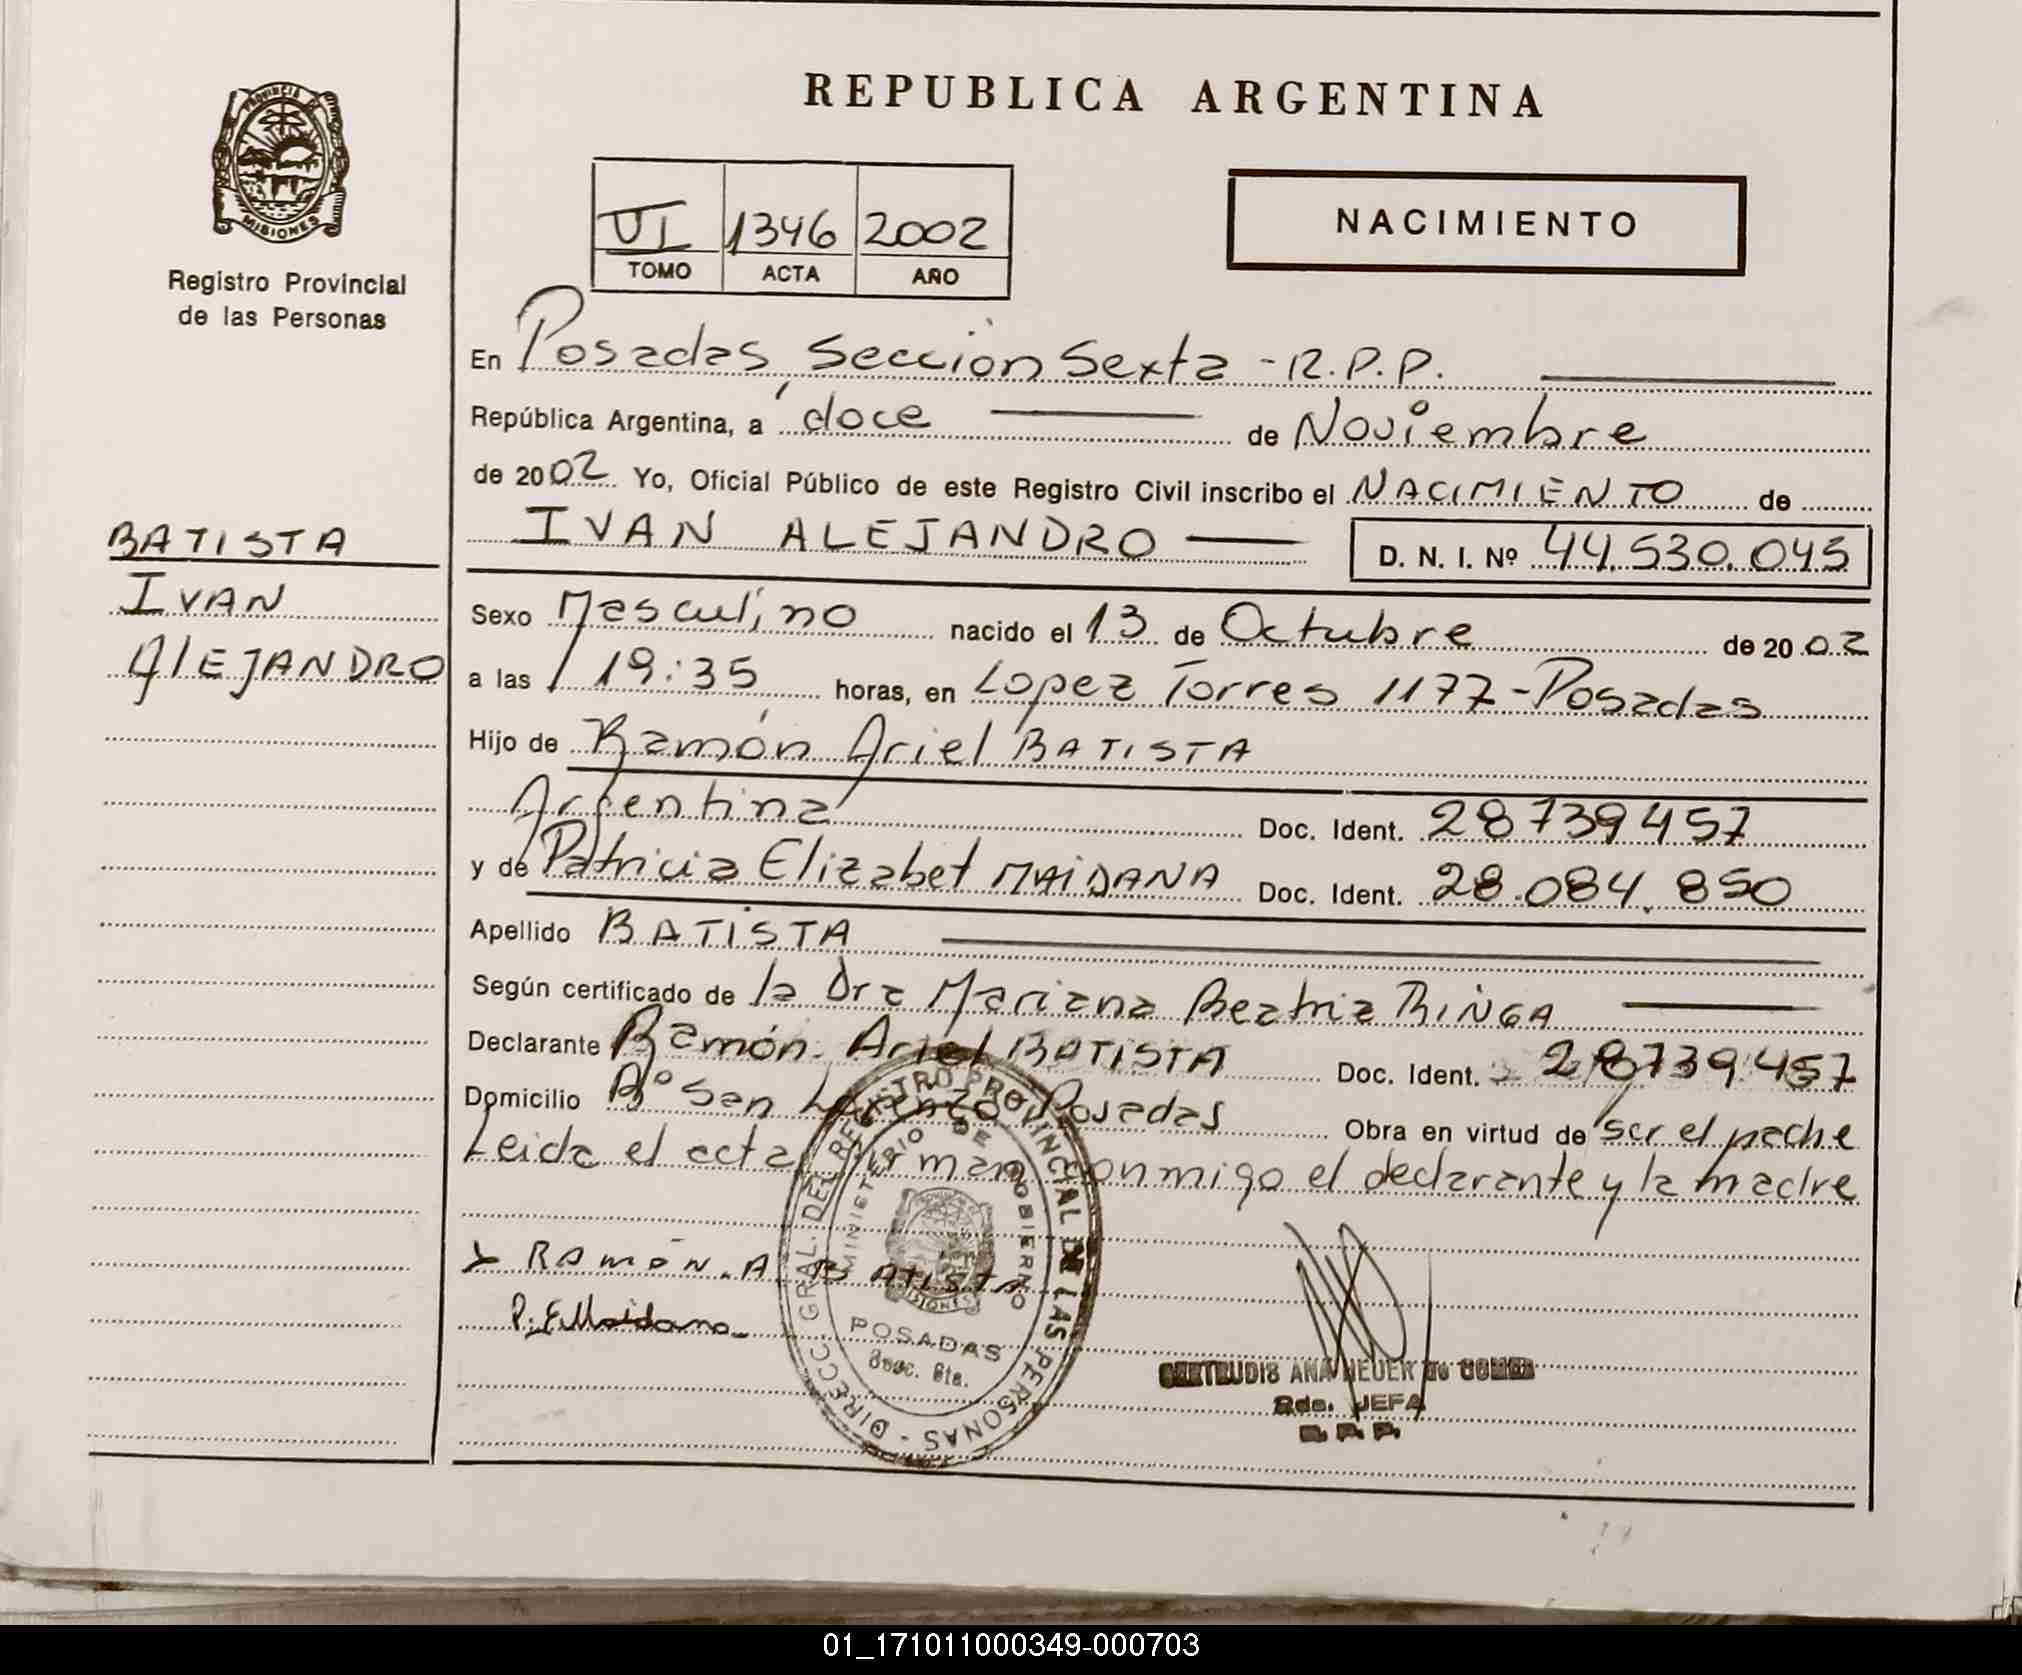 REPUBLICA ARGENTINA
PROVINCIA DE
MISIONES
Registro Provincial
de las Personas
VI 1346 2002
TOMO ACTA AÑO
NACIMIENTO
En Posadas, Sección Sexta - R.P.P.
República Argentina, a doce de Noviembre
de 2002 Yo, Oficial Público de este Registro Civil inscribo el NACIMIENTO de
IVAN ALEJANDRO D. N. I. Nº 44.530.045
BATISTA
IVAN
AlEJANDRO
Sexo Masculino nacido el 13 de Octubre de 2002
a las 19:35 horas, en Lopez Torres 1177 - Posadas
Hijo de Ramón Ariel BATISTA
Argentina Doc. Ident. 28739457
y de Patricia Elizabet MAIDANA Doc. Ident. 28.084.850
Apellido BATISTA
Según certificado de la Dra Mariana Beatriz
Declarante Ramón Ariel BATISTA Doc. Ident. 28739457
Domicilio Bº San Lorenzo Posadas Obra en virtud de ser el padre
Leida el acta firman conmigo el declarante y la madre
RAMÓN. A. BATISTA
P. E. Maidana
DIRECC. GRAL. DEL REGISTRO PROVINCIAL DE LAS PERSONAS -
MINISTERIO DE GOBIERNO
MISIONES
POSADAS
Secc. 6ta.
GERTRUDIS ANA HEUER de GOMEZ
2da. JEFA
R. P. P.
01_171011000349-000703